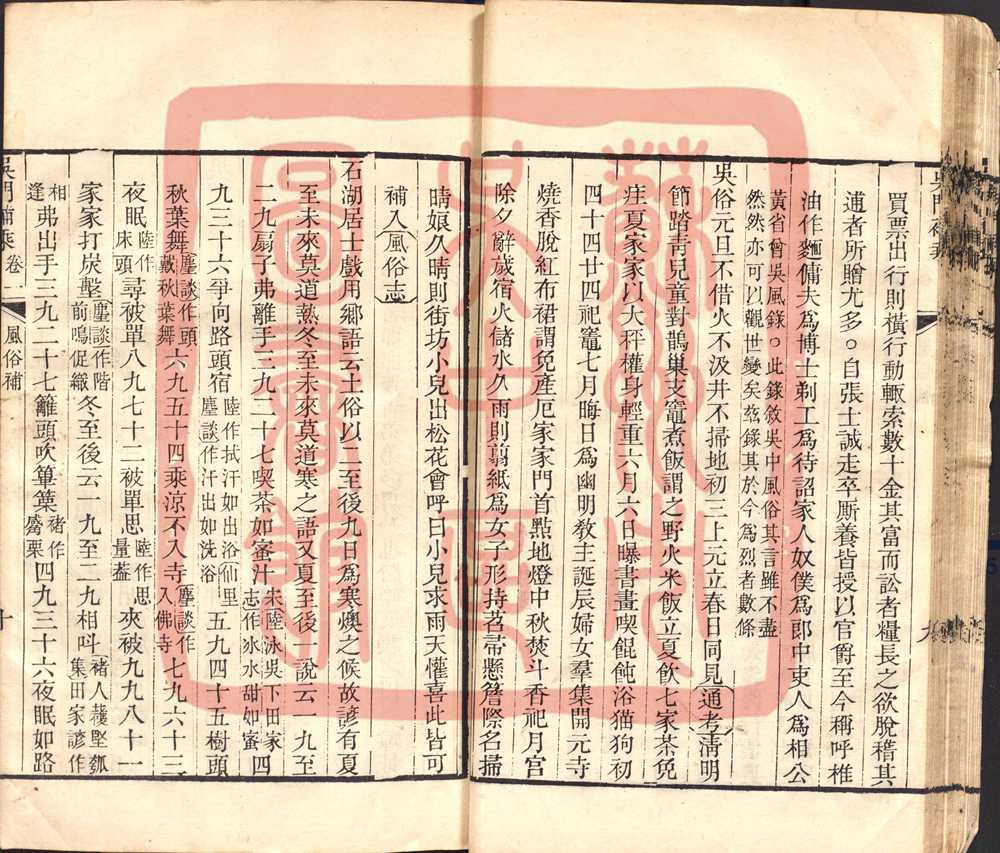 買票出行則橫行動輒索數十金其富而訟者糧長之欲脫稽其
逋者所贈尤多○自張士誠走卒厮養皆授以官爵至今稱呼椎
油作麵傭夫爲博士剃工爲待詔家人奴僕爲郎中吏人爲相公
黃省曾吳風錄○此錄敘吳中風俗其言雖不盡
然然亦可以觀世變矣茲錄其於今爲烈者數條
吳俗元旦不借火不汲井不掃地初三上元立春日同見〔通考〕清明
節踏青兒童對鵲巢支竈煮飯謂之野火米飯立夏飲七家茶免
疰夏家家以大秤權身輕重六月六日曝書畫喫餛飩浴猫狗初
四十四廿四祀竈七月晦日爲幽明教主誕辰婦女羣集開元寺
燒香脫紅布裙謂免產厄家家門首點地燈中秋焚斗香祀月宮
除夕辭歲宿火儲水久雨則翦紙爲女子形持苕帚懸簷際名掃
晴娘久晴則街坊小兒出松花會呼曰小兒求雨天懽喜此皆可
補入〔風俗志〕
石湖居士戲用鄉語云土俗以二至後九日爲寒燠之候故諺有夏
至未來莫道熱冬至未來莫道寒之語又夏至後一說云一九至
二九扇子弗離手三九二十七喫茶如蜜汁朱陸泳吳下田家志作冰水甜如蜜四
九三十六爭向路頭宿陸作拭汗如出浴仙里塵談作汗出如洗浴五九四十五樹頭
秋葉舞塵談作頭戴秋葉舞六九五十四乘涼不入寺塵談作入佛寺七九六十三
夜眠陸作床頭尋被單八九七十二被單思陸作思量葢夾被九九八十一
家家打炭墼塵談作階前鳴促織冬至後云一九至二九相呌褚人穫堅瓠集田家諺作
相逢弗出手三九二十七籬頭吹篳篥褚作觱栗四九三十六夜眠如路
吳門補乘 卷一 風俗補 十